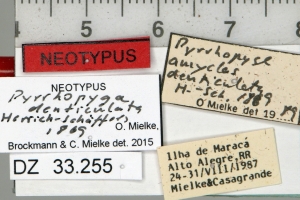 4 5 6
NEOTYPUS
NEOTYPUS
Pyrrhopyga
denticulata
Herrich-Schäffer,
1869
O. Mielke,
Brockmann & C. Mielke det. 2015
DZ 33.255
Pyrrhopyge
amyclas
denticulata
H.-Sch. 1869
O Mielke det 19
Ilha de Maracá
Alto Alegre, RR
24-31/VIII/1987
Mielke&Casagrande